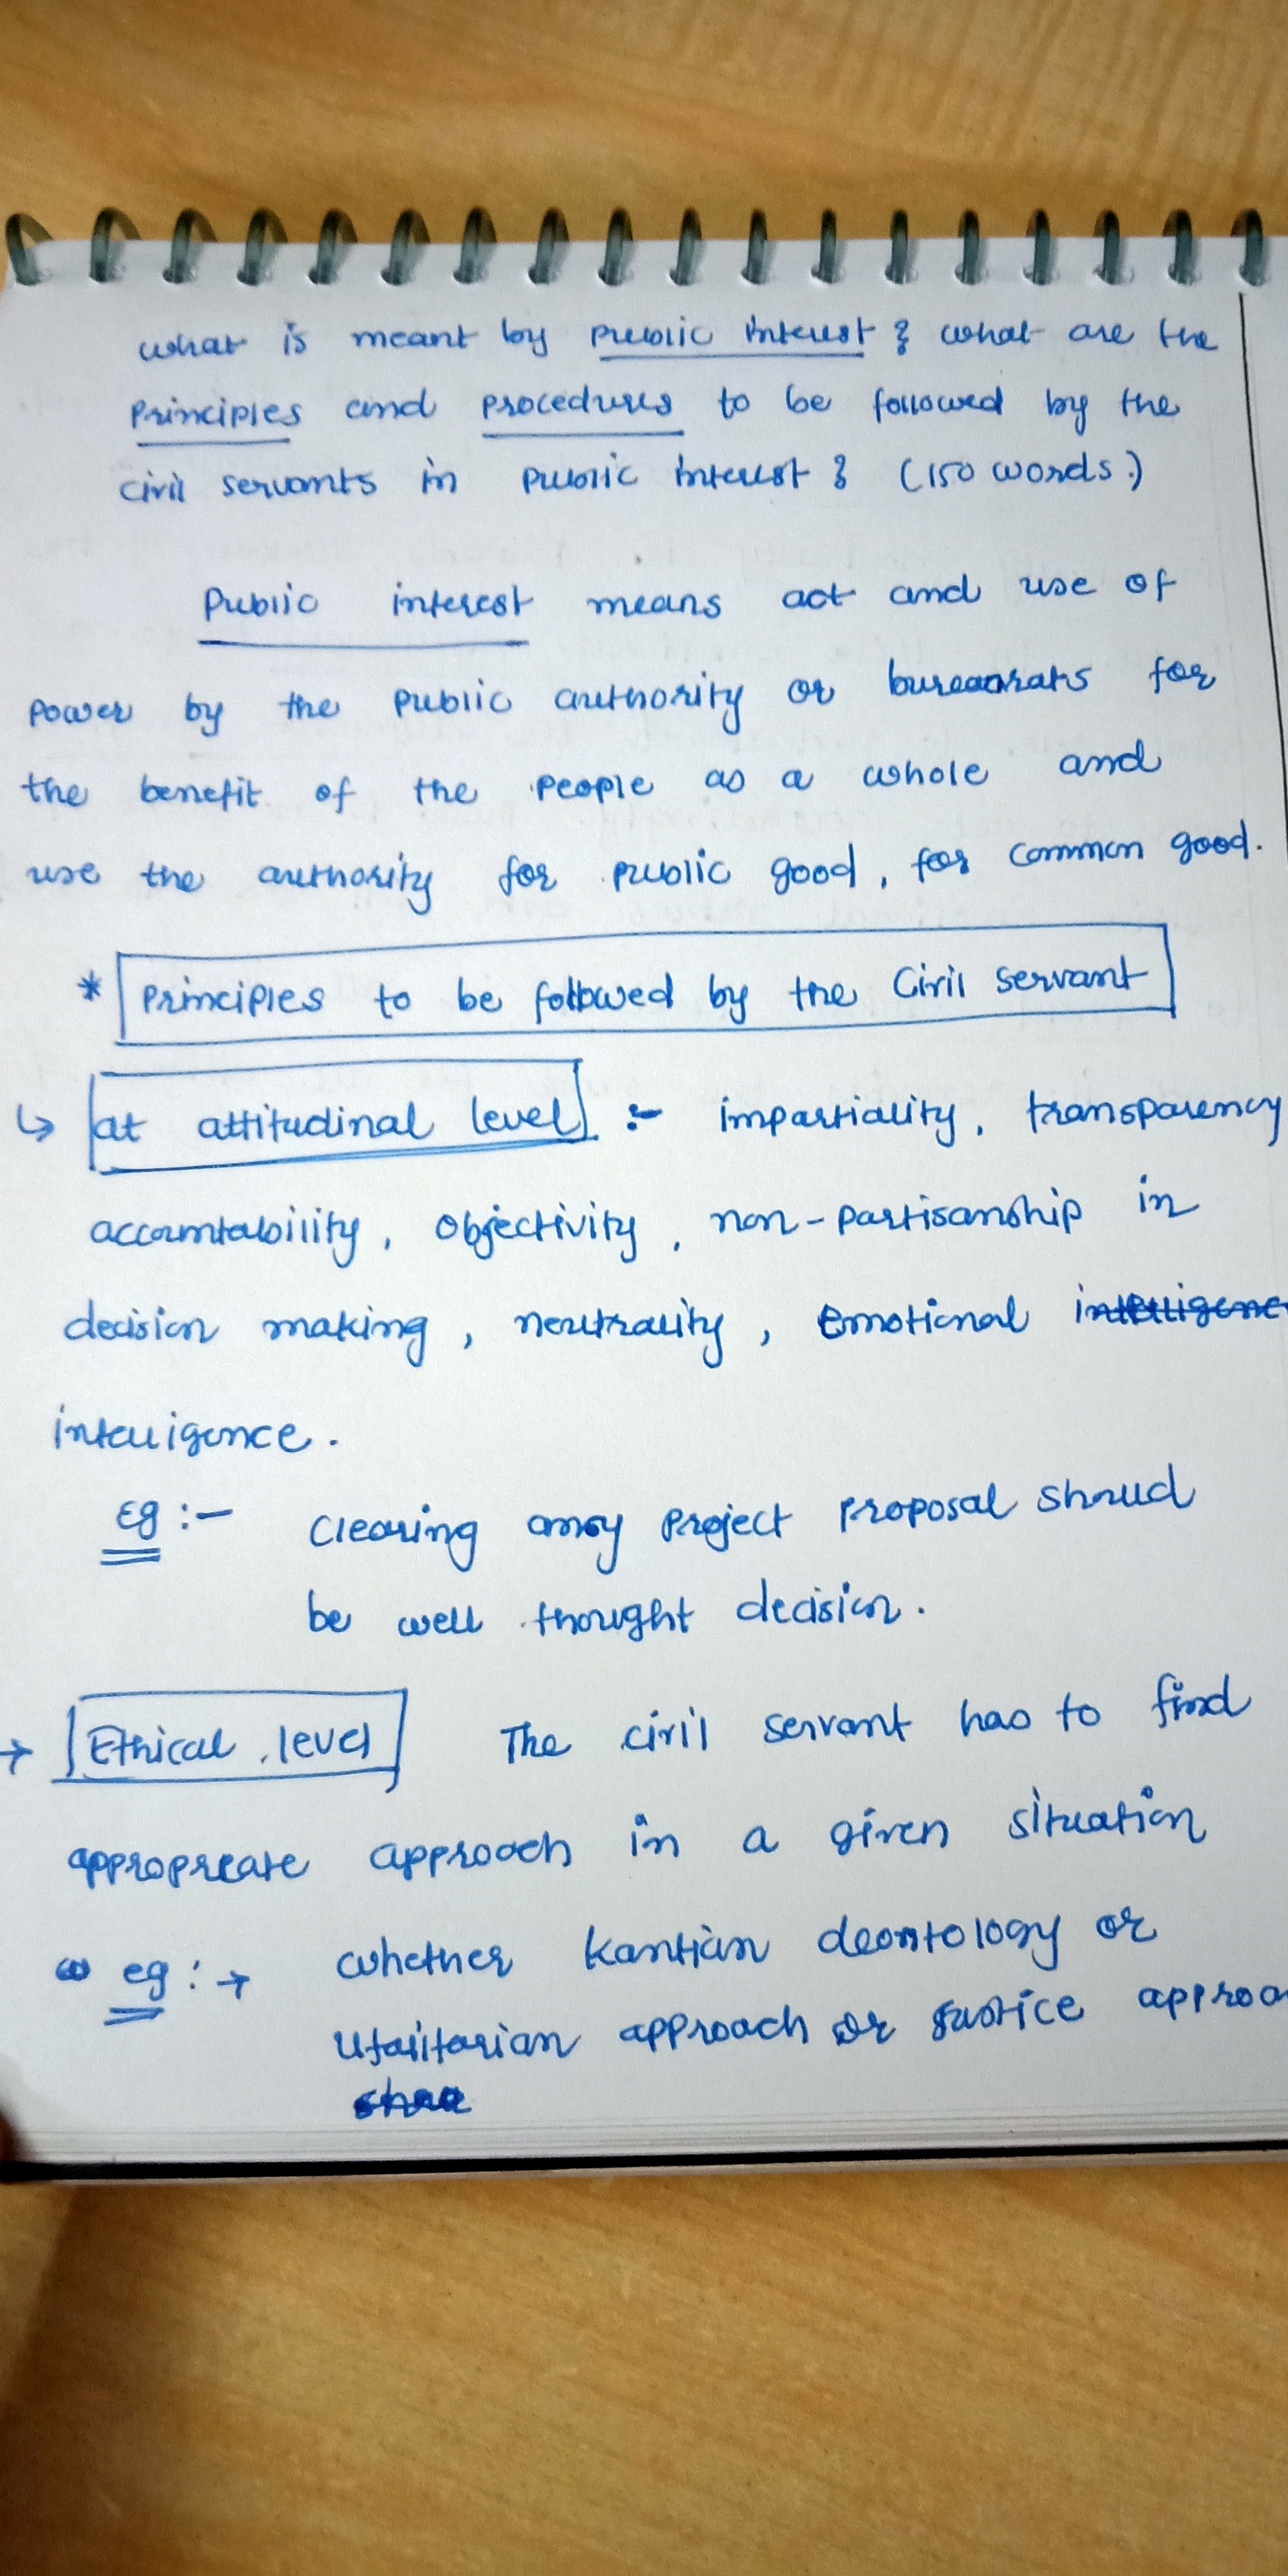 what is meant by public interest ? what are the
principles and procedures to be followed by the
civil servants in public interest ? (150 words.)
Public interest means act and use of
power by the public authority or bureaucrats for
the benefit of the people as a whole and
use the authority for public good, for common good.
* Principles to be followed by the Civil servant
↳ at attitudinal level :- impartiality, transparency
accountability, objectivity, non-partisanship in
decision making, neutrality, emotional intelligence
intelligence.
Eg :- Clearing any project proposal should
be well thought decision.
→ Ethical level The civil servant has to find
appropreate approach in a given situation
eg :→ whether Kantian deontology or
Utilitarian approach or justice approa